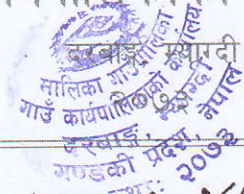 दरबाङ, म्याग्दी
मालिका गाउँपालिका
गाउँ कार्यपालिकाको कार्यालय
दरबाङ, म्याग्दी
गण्डकी प्रदेश, नेपाल
२०७३